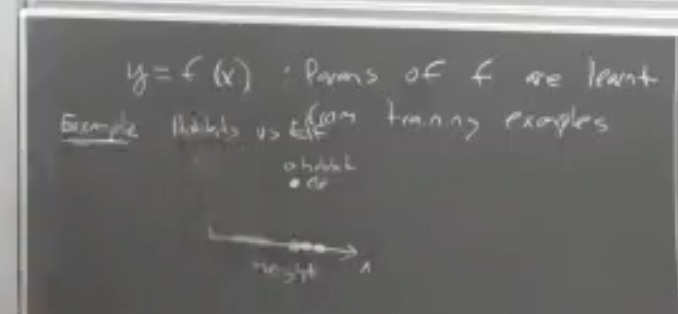 y = f(x) : Params of f are learnt
from training examples
Example Hobbits vs Elf
o hobbit
• elf
height x